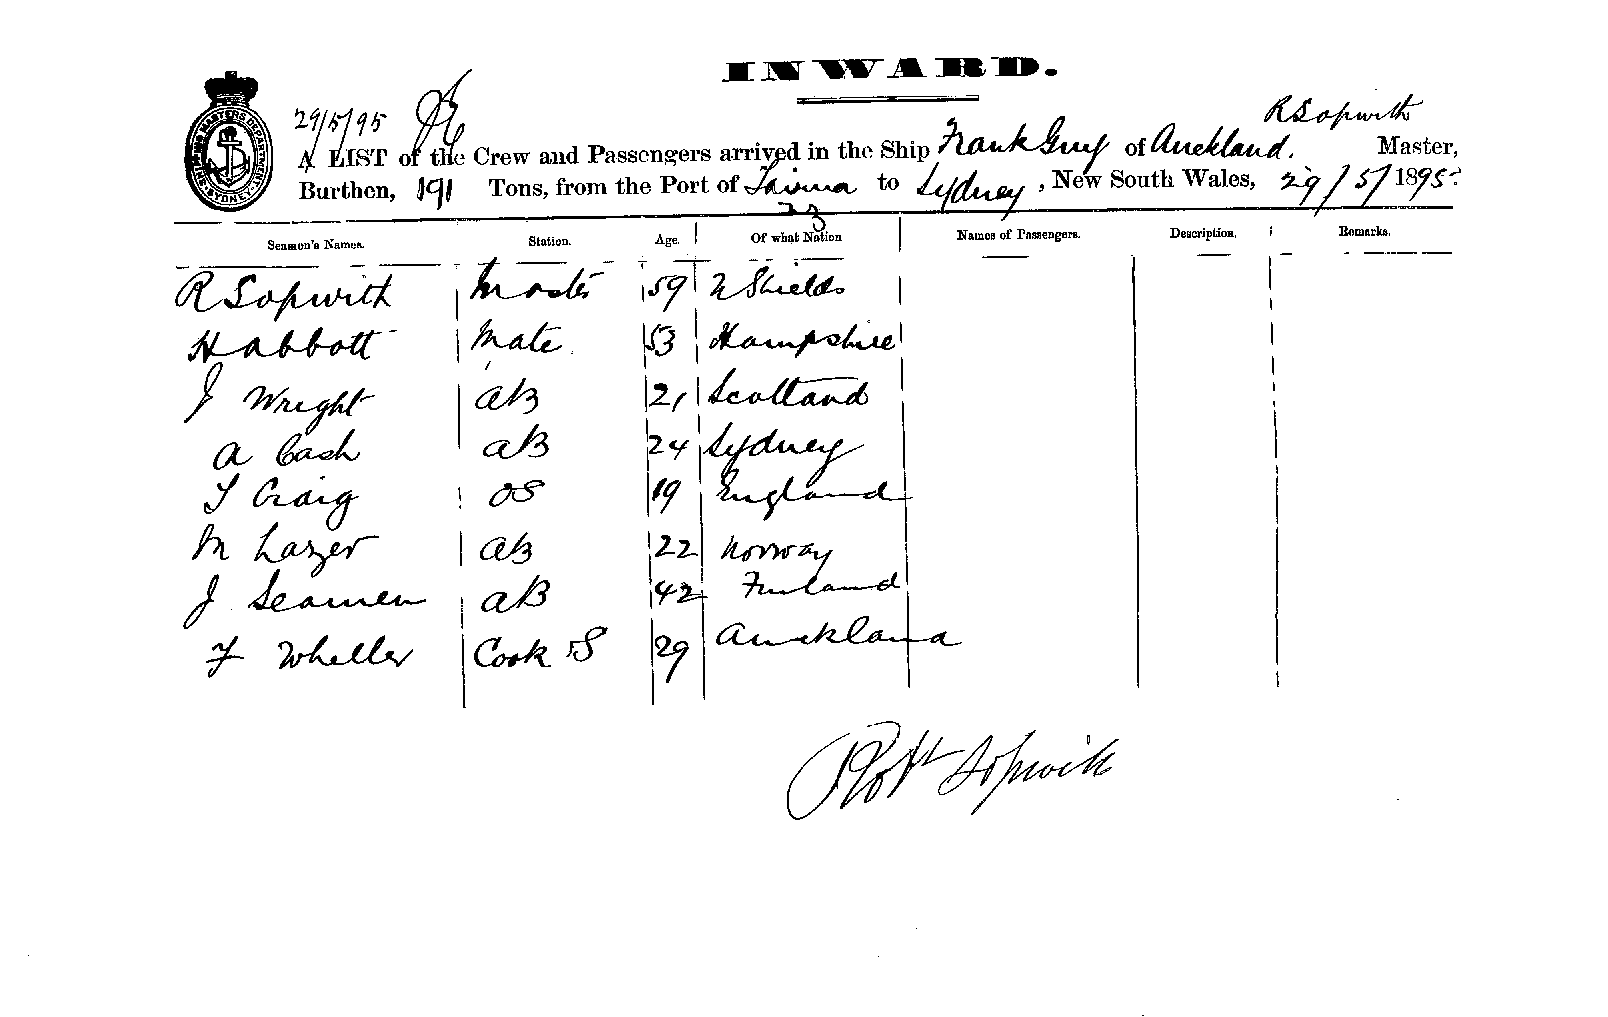 INWARD.
29/5/95
R Sopwith
A LIST of the Crew and Passengers arrived in the Ship Frank Guy of Auckland. Master,
Burthen, 191 Tons, from the Port of to Sydney, New South Wales, 29/5/1895
Seamen's Names. Station. Age. Of what Nation Names of Passengers. Description. Remarks.
R Sopwith Master 59 N Shields
H abbott Mate 53 Hampshire
J Wright aB 21 Scotland
a Cash aB 24 Sydney
T Craig OS 19 England
M Lazer aB 22 Norway
J Seamen aB 42 Finland
F Wheller Cook S 29 Auckland
Robt Sopwith